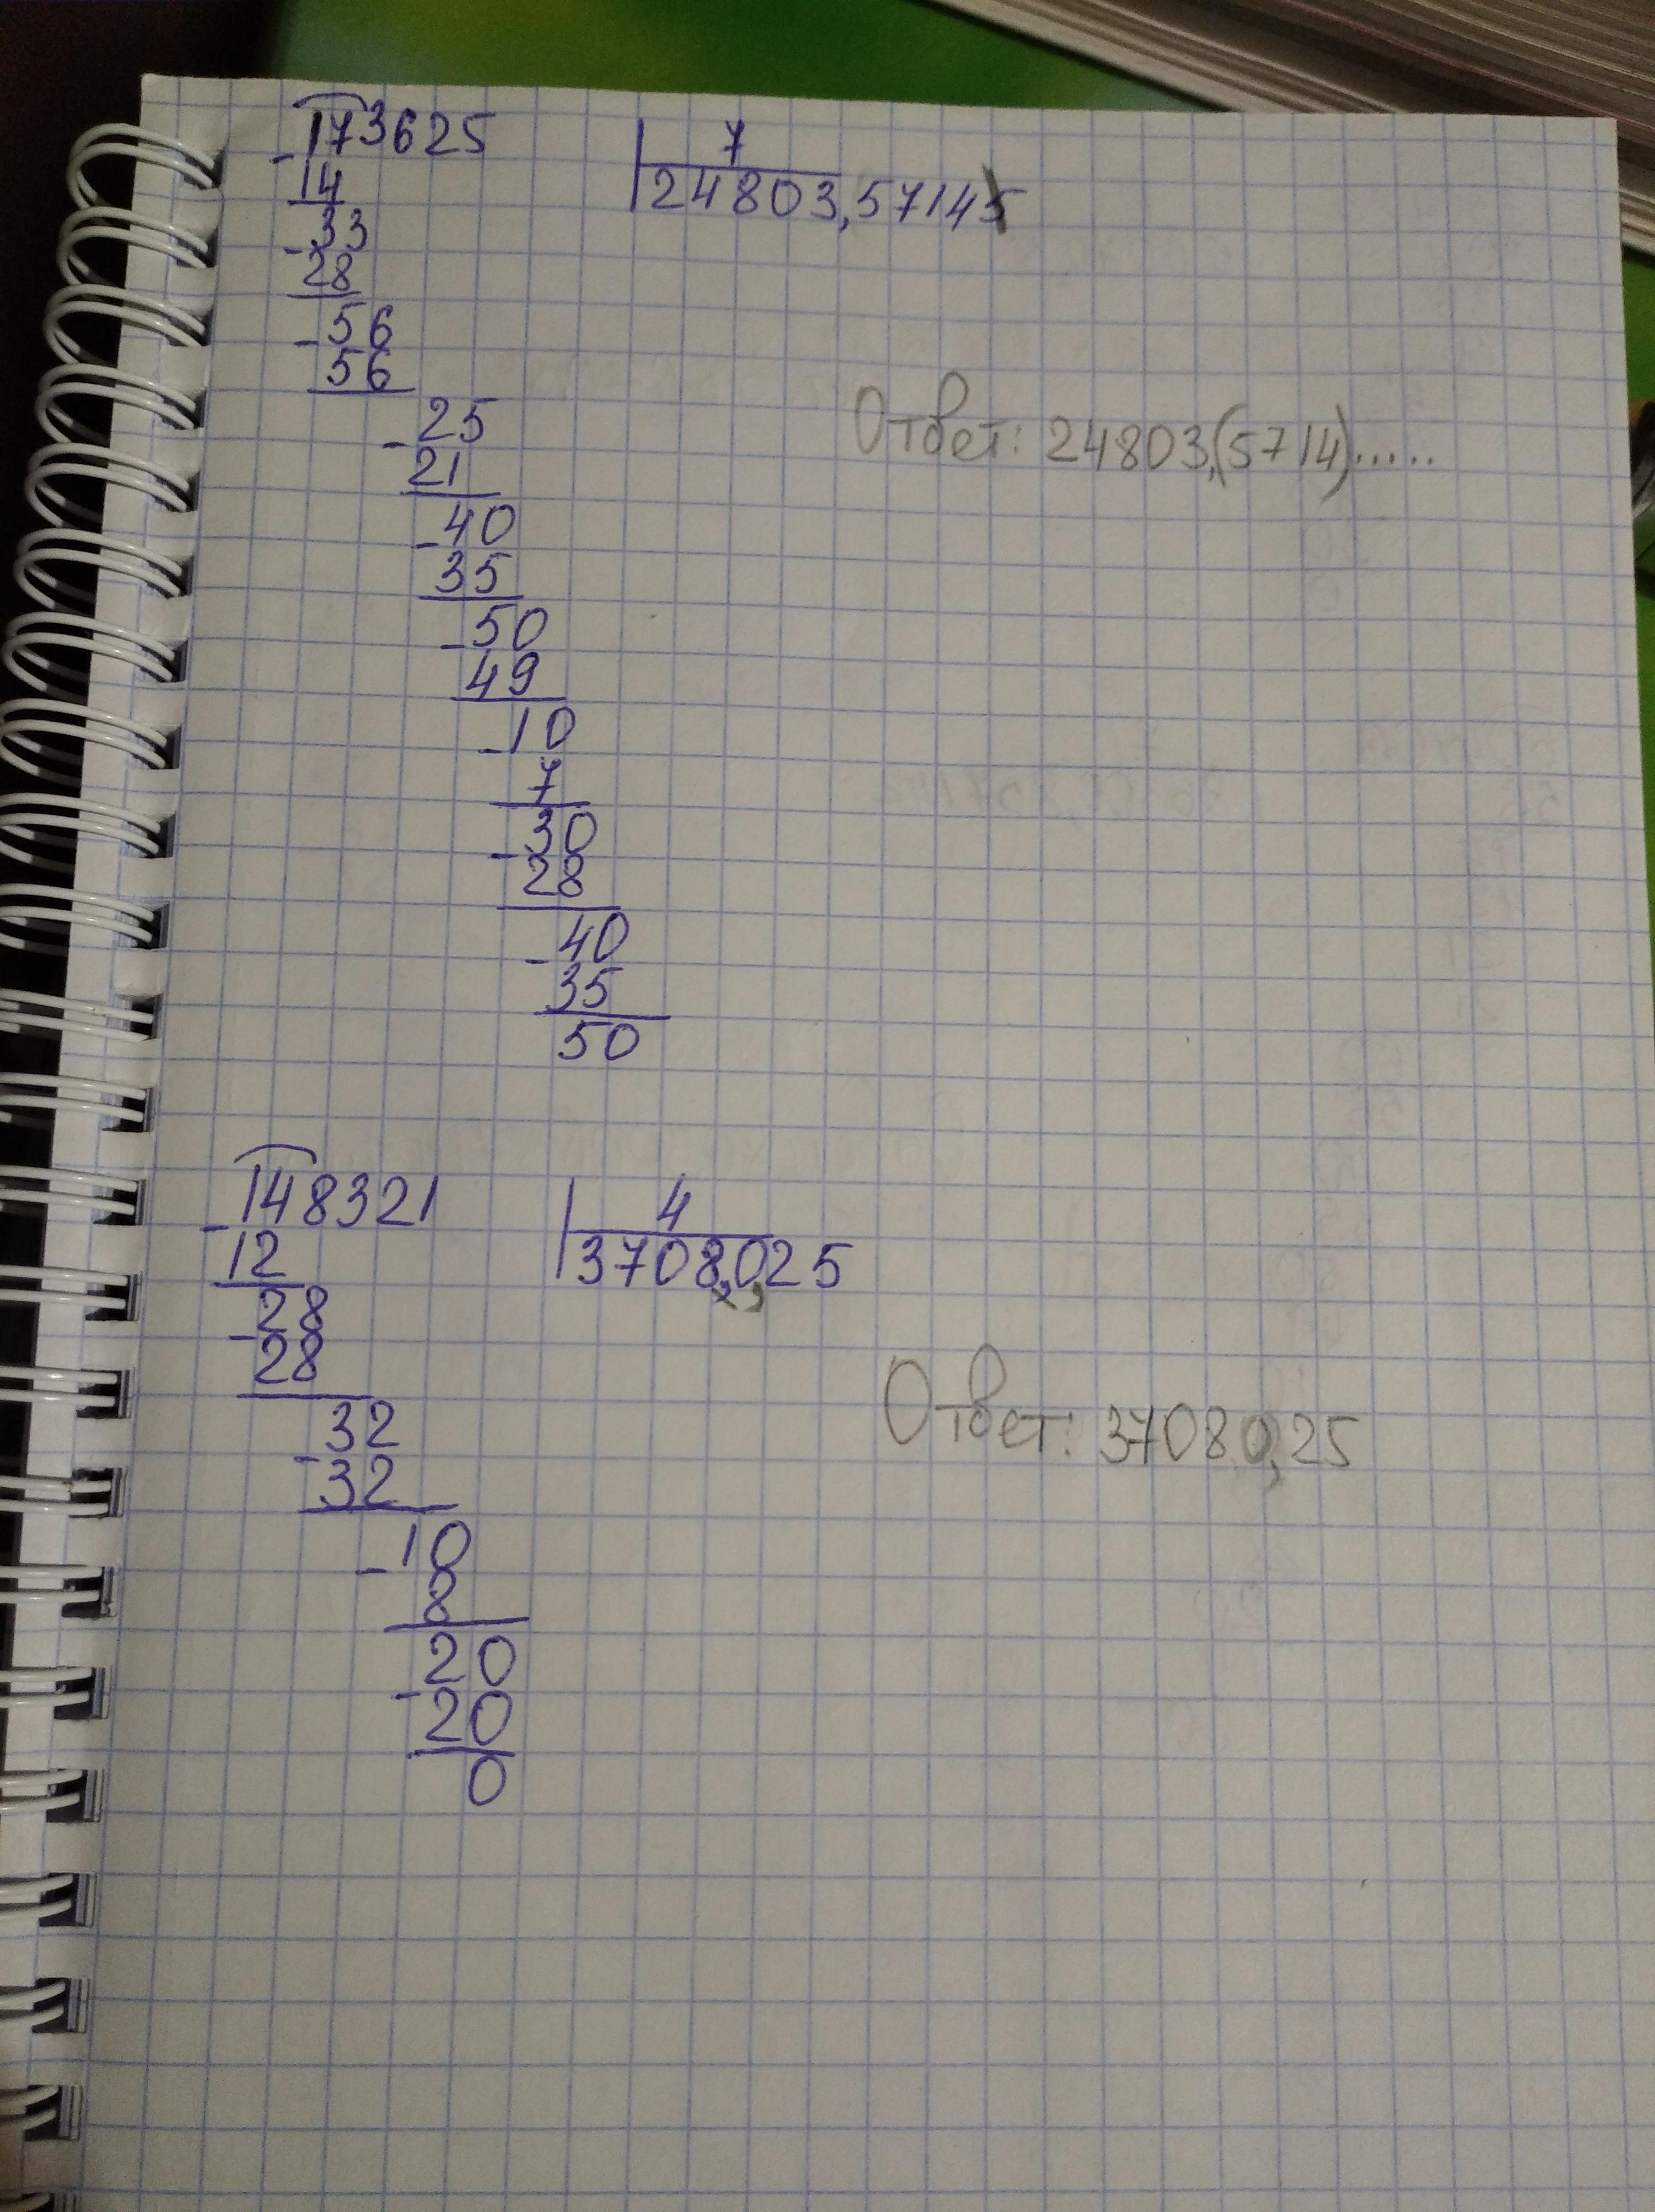 173625 7
14 24803,57145
33
28
56
56
25
21
Ответ: 24803,(5714).....
40
35
50
49
10
7
30
28
40
35
50
148321 4
12 3708,0,25
28
28
32
Ответ: 37080,25
32
10
8
20
20
0